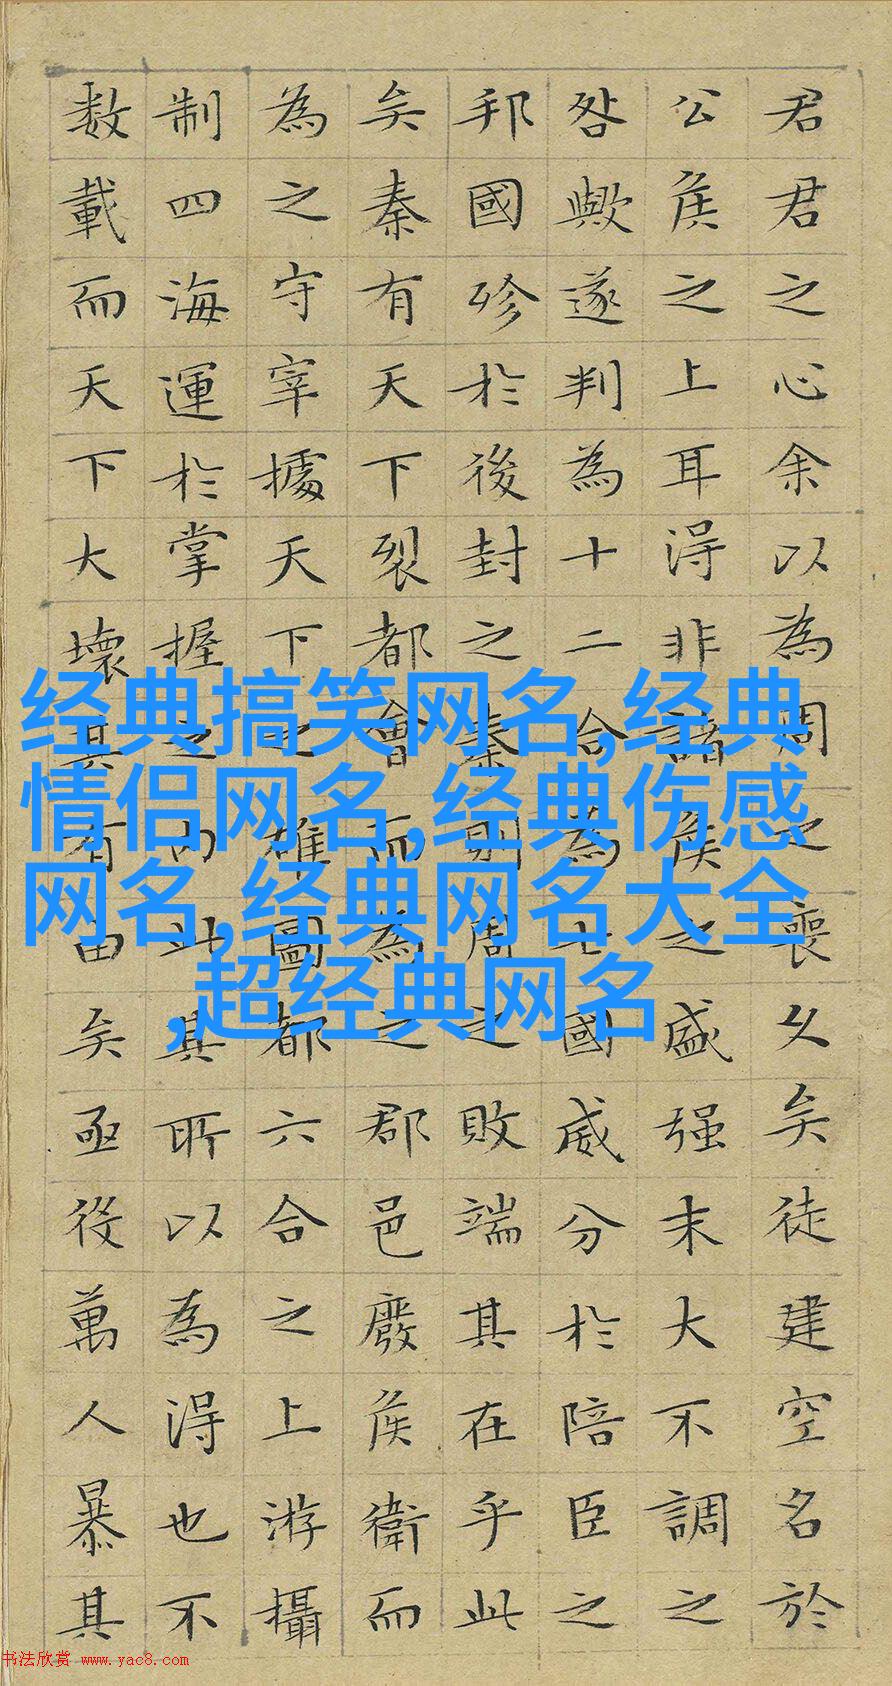 君君之心余以為周之喪久矣徒建空名於
公侯之上耳得非諸侯之盛强末大不調之
咎歟遂判為十二合為七國威分於陪臣之
邦國殄於後封之秦則周之敗端其在乎此
矣秦有天下裂都會而為之郡邑廢侯衛而
為之守宰據天下之雄圖都六合之上游攝
制四海運於掌握之内此其所以為得也不
数載而天下大壞其有由矣亟役萬人暴其
经典搞笑网名,经典
情侣网名,经典伤感
网名,经典网名大全
,超经典网名
书法欣赏 www.yac8.com